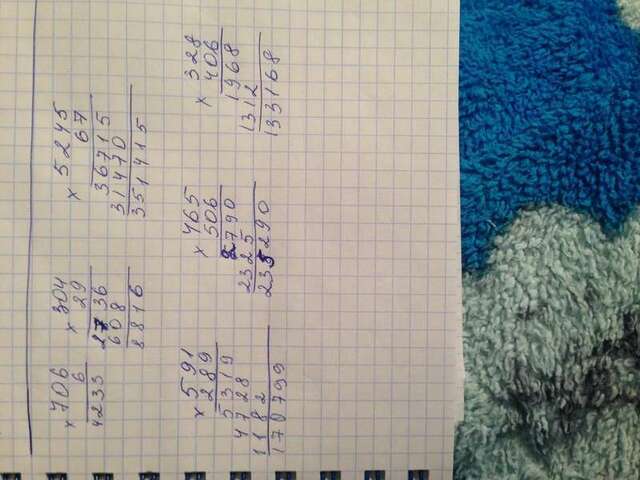 × 706
6
4233
× 304
29
2736
608
8816
× 5245
67
36715
31470
351415
× 591
289
5319
4728
1182
170799
× 465
506
2790
2325
235290
× 328
406
1968
1312
133168